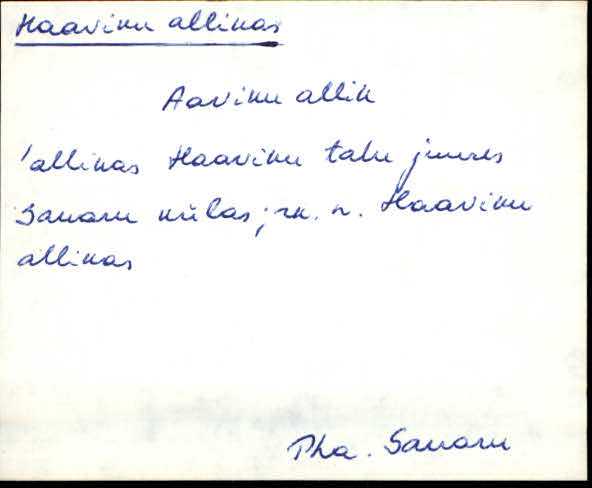 Haaviku allikas
Aaviku allik
'allikas Haaviku talu juures
Sauaru külas; rk. n. Haaviku
allikas
Pha. Sauaru